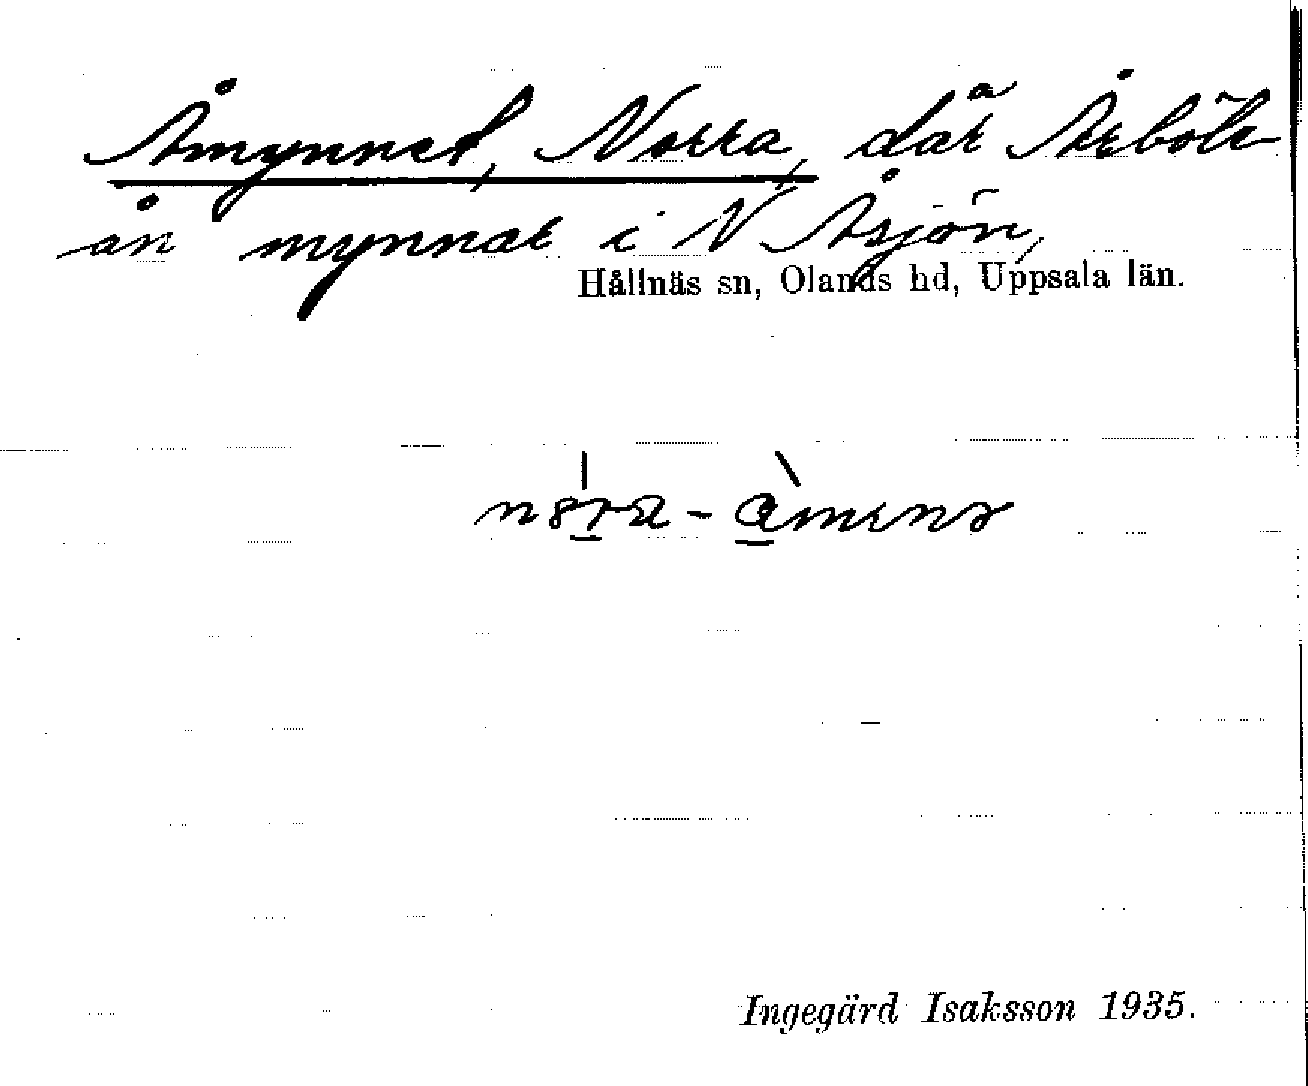 Åmynnet, Norra, där Årböle
ån mynnar i N Åsjön,
Hållnäs sn, Olands hd, Uppsala län.
Ingegärd Isaksson 1935.